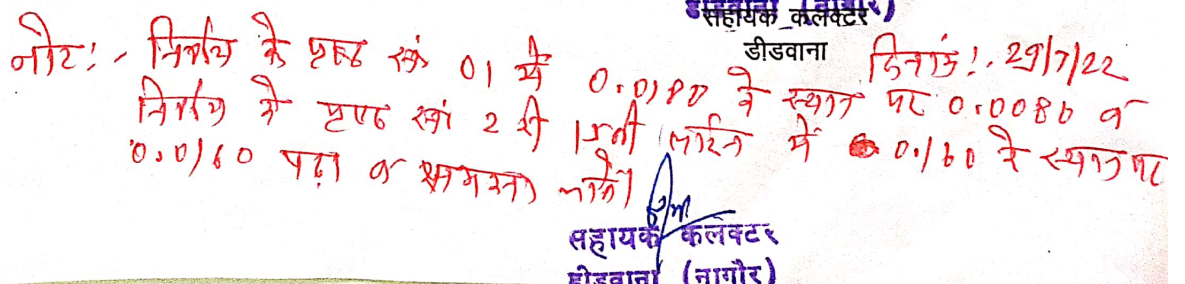 सहायक कलेक्टर
डीडवाना
दिनांक:- 29/7/22
नोट:- निर्णय के पृष्ठ सं 01 में 0.0180 के स्थान पर 0.0080 व
निर्णय के पृष्ठ सं 2 की 15वीं लाईन में 0.160 के स्थान पर
0.0160 पढ़ा व समझा जावे।
सहायक कलेक्टर
डीडवाना (नागौर)